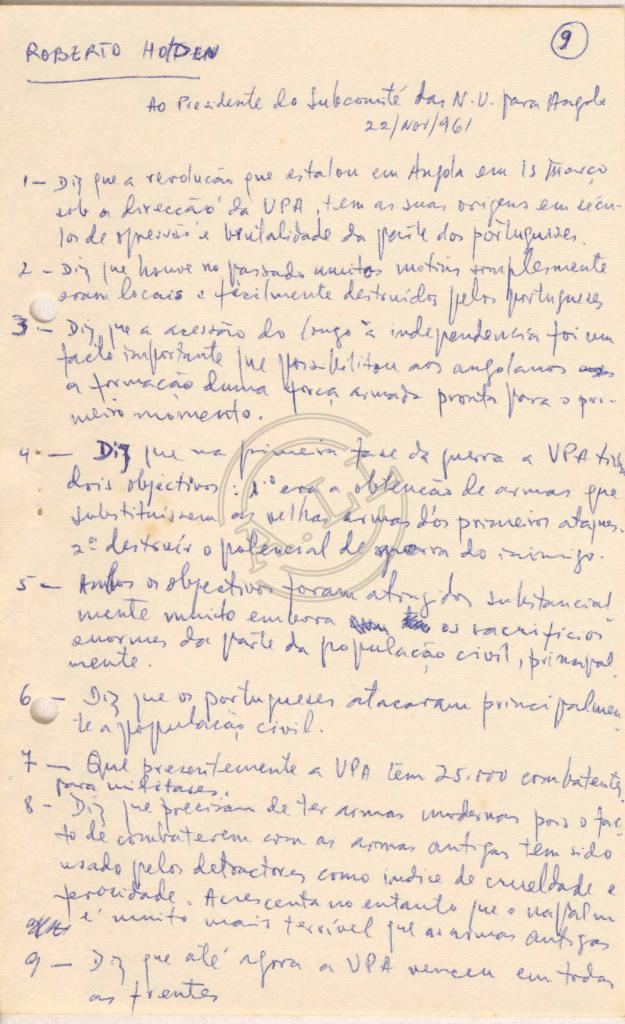 9
ROBERTO HOLDEN
Ao Presidente do Subcomité das N.U. para Angola
22/Nov/961
1 – Diz que a revolução que estalou em Angola em 15 Março
sob a direcção da UPA, tem as suas origens em sécu-
los de opressão e brutalidade da parte dos portugueses.
2 – Diz que houve no passado muitos motins simplesmente
eram locais e fàcilmente destruídos pelos portugueses
3 – Diz que a acessão do Congo à independencia foi um
facto importante que possibilitou aos angolanos
a formação duma força armada pronta para o pri-
meiro momento.
4 – Diz que na primeira fase da guerra a UPA tinha
dois objectivos: 1º era a obtenção de armas que
substituissem as velhas armas dos primeiros ataques.
2º destruir o potencial de guerra do inimigo.
5 – Ambos os objectivos foram atingidos substancial
mente muito embora os sacrifícios
enormes da parte da população civil, principal
mente.
6 – Diz que os portugueses atacaram principalmen-
te a população civil.
7 – Que presentemente a UPA tem 25.000 combatentes
para militares.
8 – Diz que precisam de ter armas modernas pois o fac-
to de combaterem com as armas antigas tem sido
usado pelos detractores como indice de crueldade e
ferocidade. Acrescenta no entanto que o napalm
é muito mais terrível que as armas antigas
9 – Diz que até agora a UPA venceu em todas
as frentes